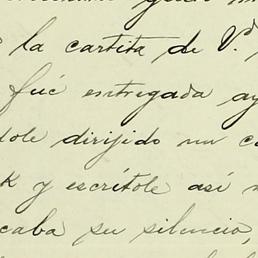 la cartita de V.d
fué entregada ay
dole dirijido un c
k y escrítole así
caba su silencio,